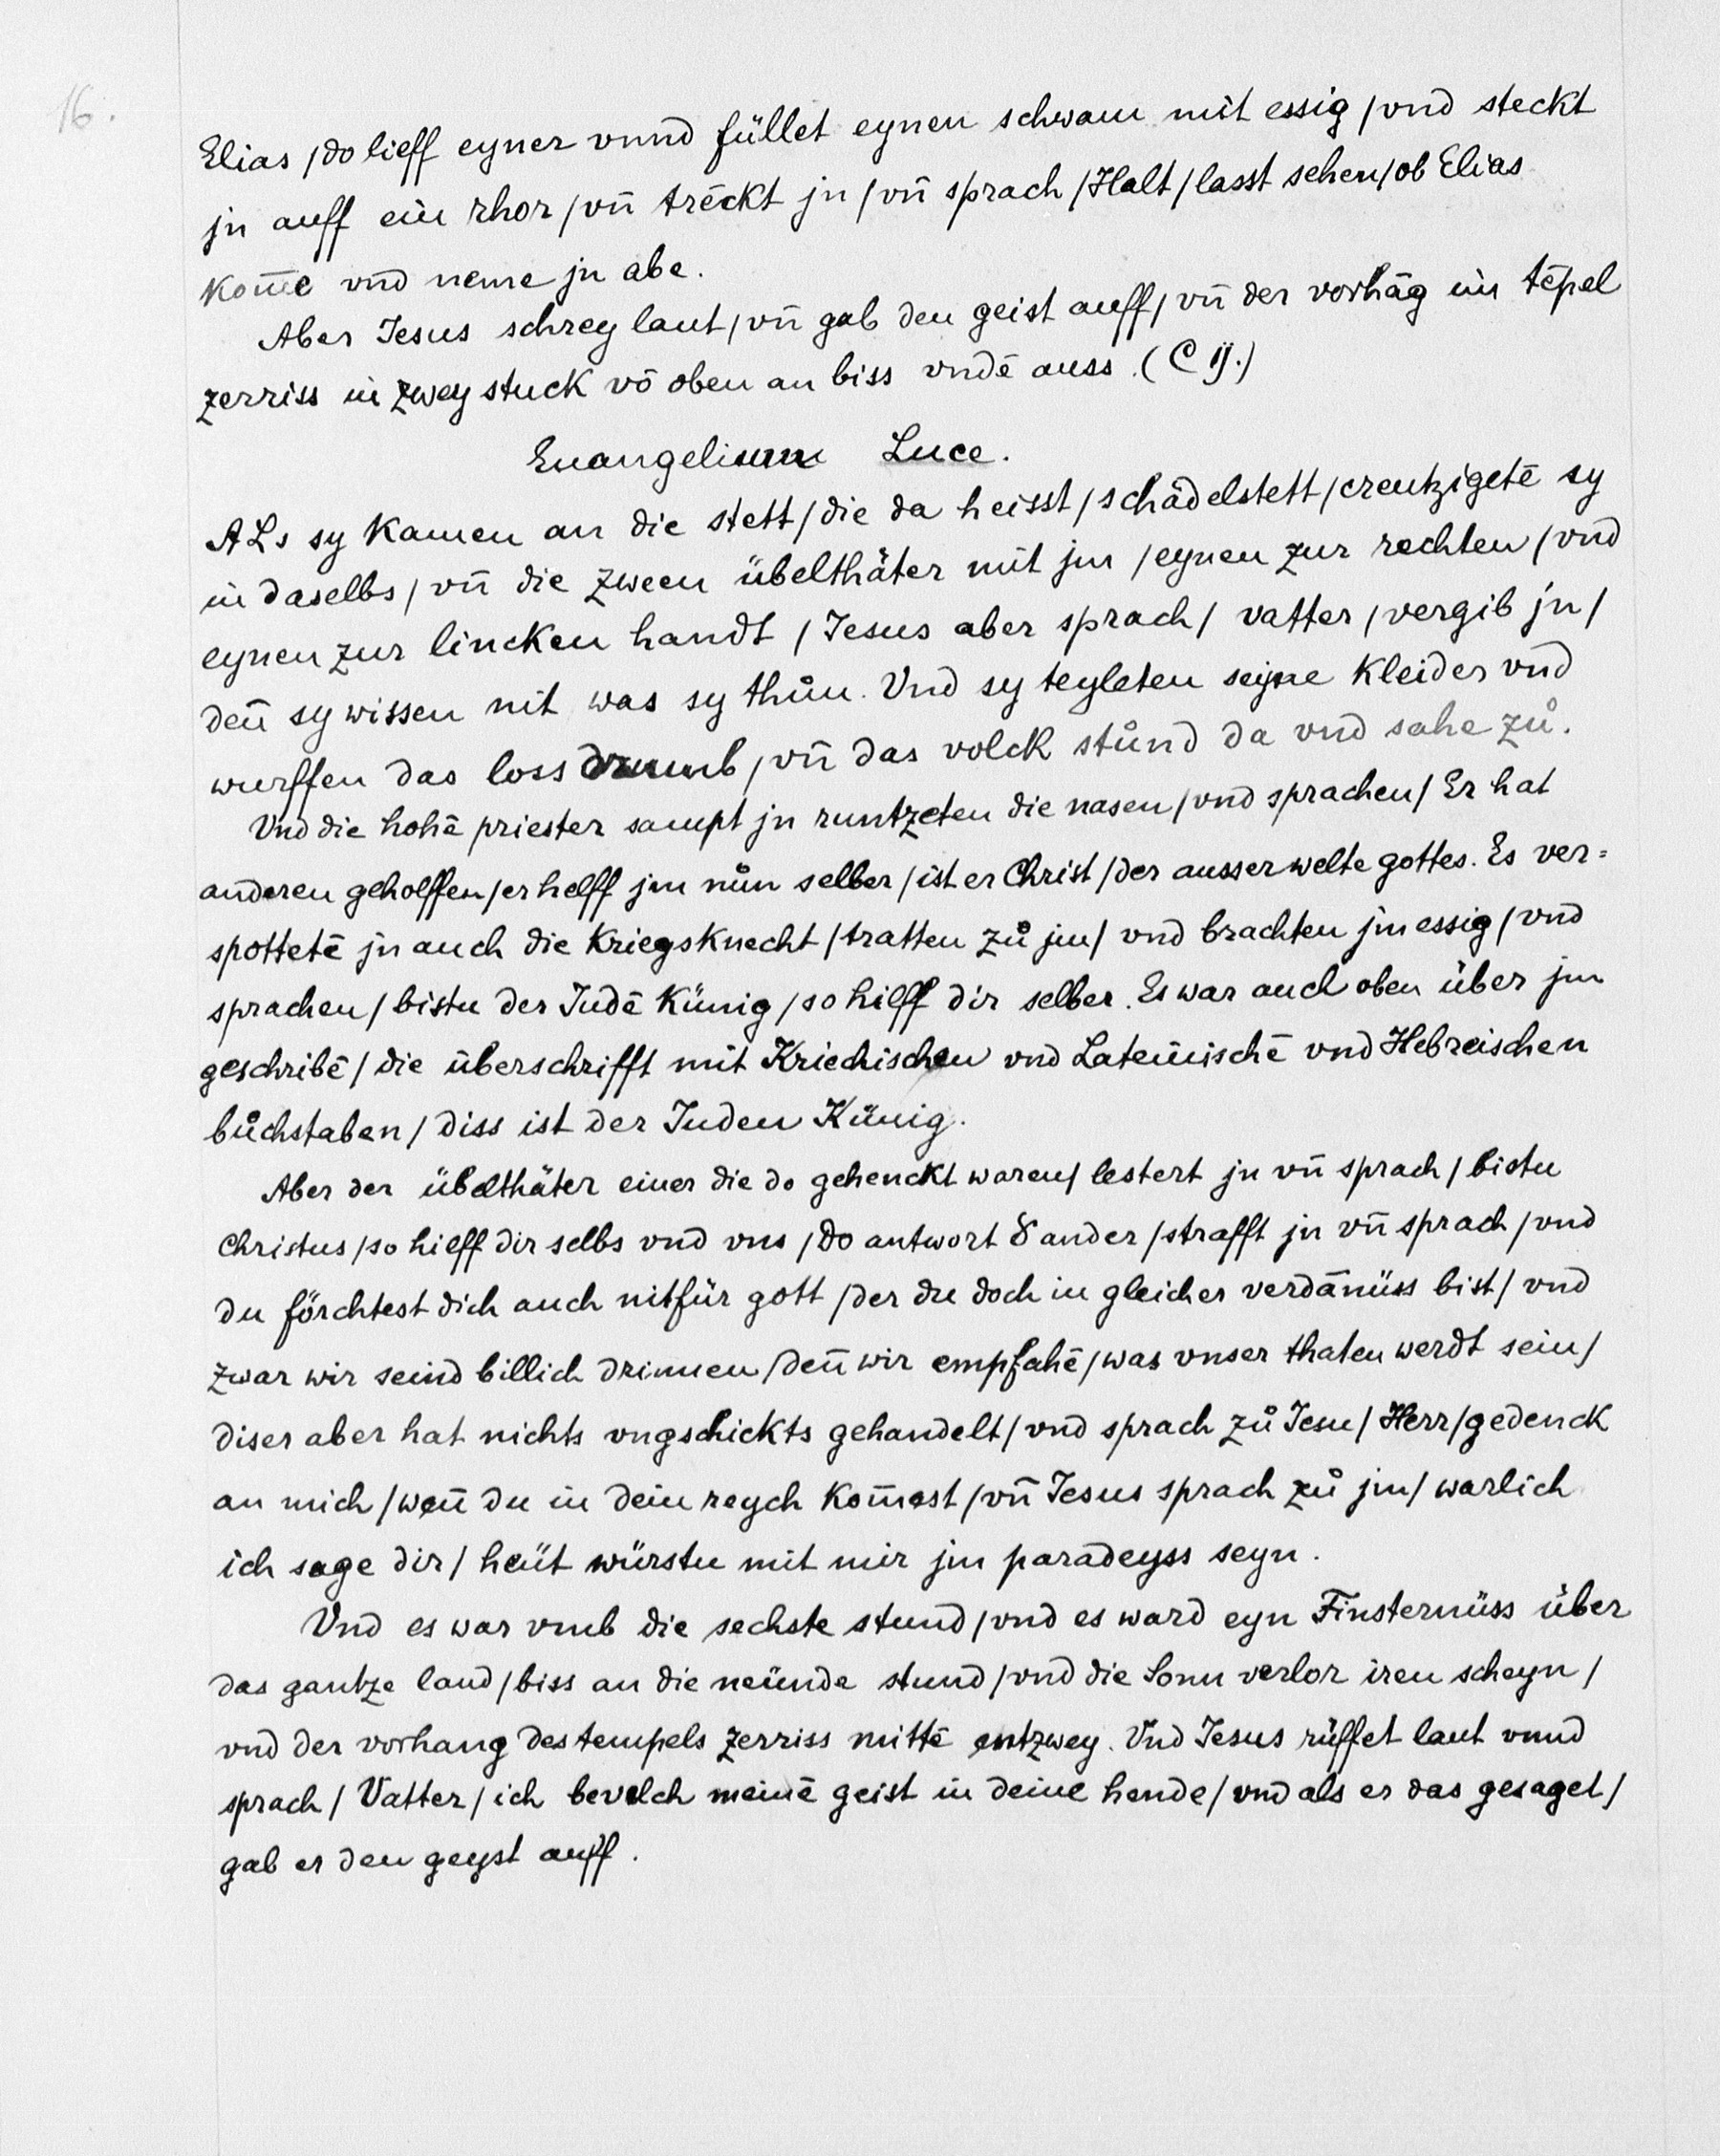 16.
Elias / do lieff eyner vnnd füllet eynen schwam mit essig / vnd steckt
jn auff ein rhor / vn̄ trēckt jn / vn̄ sprach / Halt / lasst sehen / ob Elias
kom̄e vnd neme jn abe.
Aber Jesus schrey laut / vn̄ gab den geist auff / vn̄ der vorhāg im tēpel
zerriss in zwey stuck vō oben an biss vndē auss. (C ij.)
Euangelium Luce.
ALs sy kamen an die stett / die da heisst / schädelstett / creutzigetē sy
in daselbs / vn̄ die zween übelthäter mit jm / eynen zur rechten / vnd
eynen zur lincken handt / Jesus aber sprach / vatter / vergib jn /
den̄ sy wissen nit was sy thůn. Vnd sy teyleten seyne kleider vnd
wurffen das loss drumb / vn̄ das volck stůnd da vnd sahe zů.
Vnd die hohē priester sampt jn runtzeten die nasen / vnd sprachen / Er hat
anderen geholffen / er helff jm nůn selber / ist er Christ / der ausserwelte gottes. Es ver=
spottetē jn auch die kriegsknecht / tratten zů jm / vnd brachten jm essig / vnd
sprachen / bistu der Judē Künig / so hilff dir selber. Es war auch oben über jm
geschribē / die überschrifft mit Kriechischen vnd Lateinischē vnd Hebreischen
bůchstaben / diss ist der Juden Künig.
Aber der übelthäter einer die do gehenckt waren / lestert jn vn̄ sprach / bistu
Christus / so hieff dir selbs vnd vns / do antwort δ ander / strafft jn vn̄ sprach / vnd
du förchtest dich auch nit für gott / der du doch in gleicher verdānüss bist / vnd
zwar wir seind billich drinnen / den̄ wir empfahē / was vnser thaten werdt sein /
diser aber hat nichts vngschickts gehandelt / vnd sprach zů Jesu / Herr / gedenck
an mich / wen̄ du in dein reych kom̄est / vn̄ Jesus sprach zů jm / warlich
ich sage dir / heüt würstu mit mir jm paradeyss seyn.
Vnd es war vmb die sechste stund / vnd es ward eyn Finsternüss über
das gantze land / biss an die neünde stund / vnd die Sonn verlor iren scheyn /
vnd der vorhang des tempels zerriss mittē entzwey. Vnd Jesus rüffet laut vnnd
sprach / Vatter / ich bevelch meinē geist in deine hende / vnd als er das gesaget /
gab er den geyst auff.